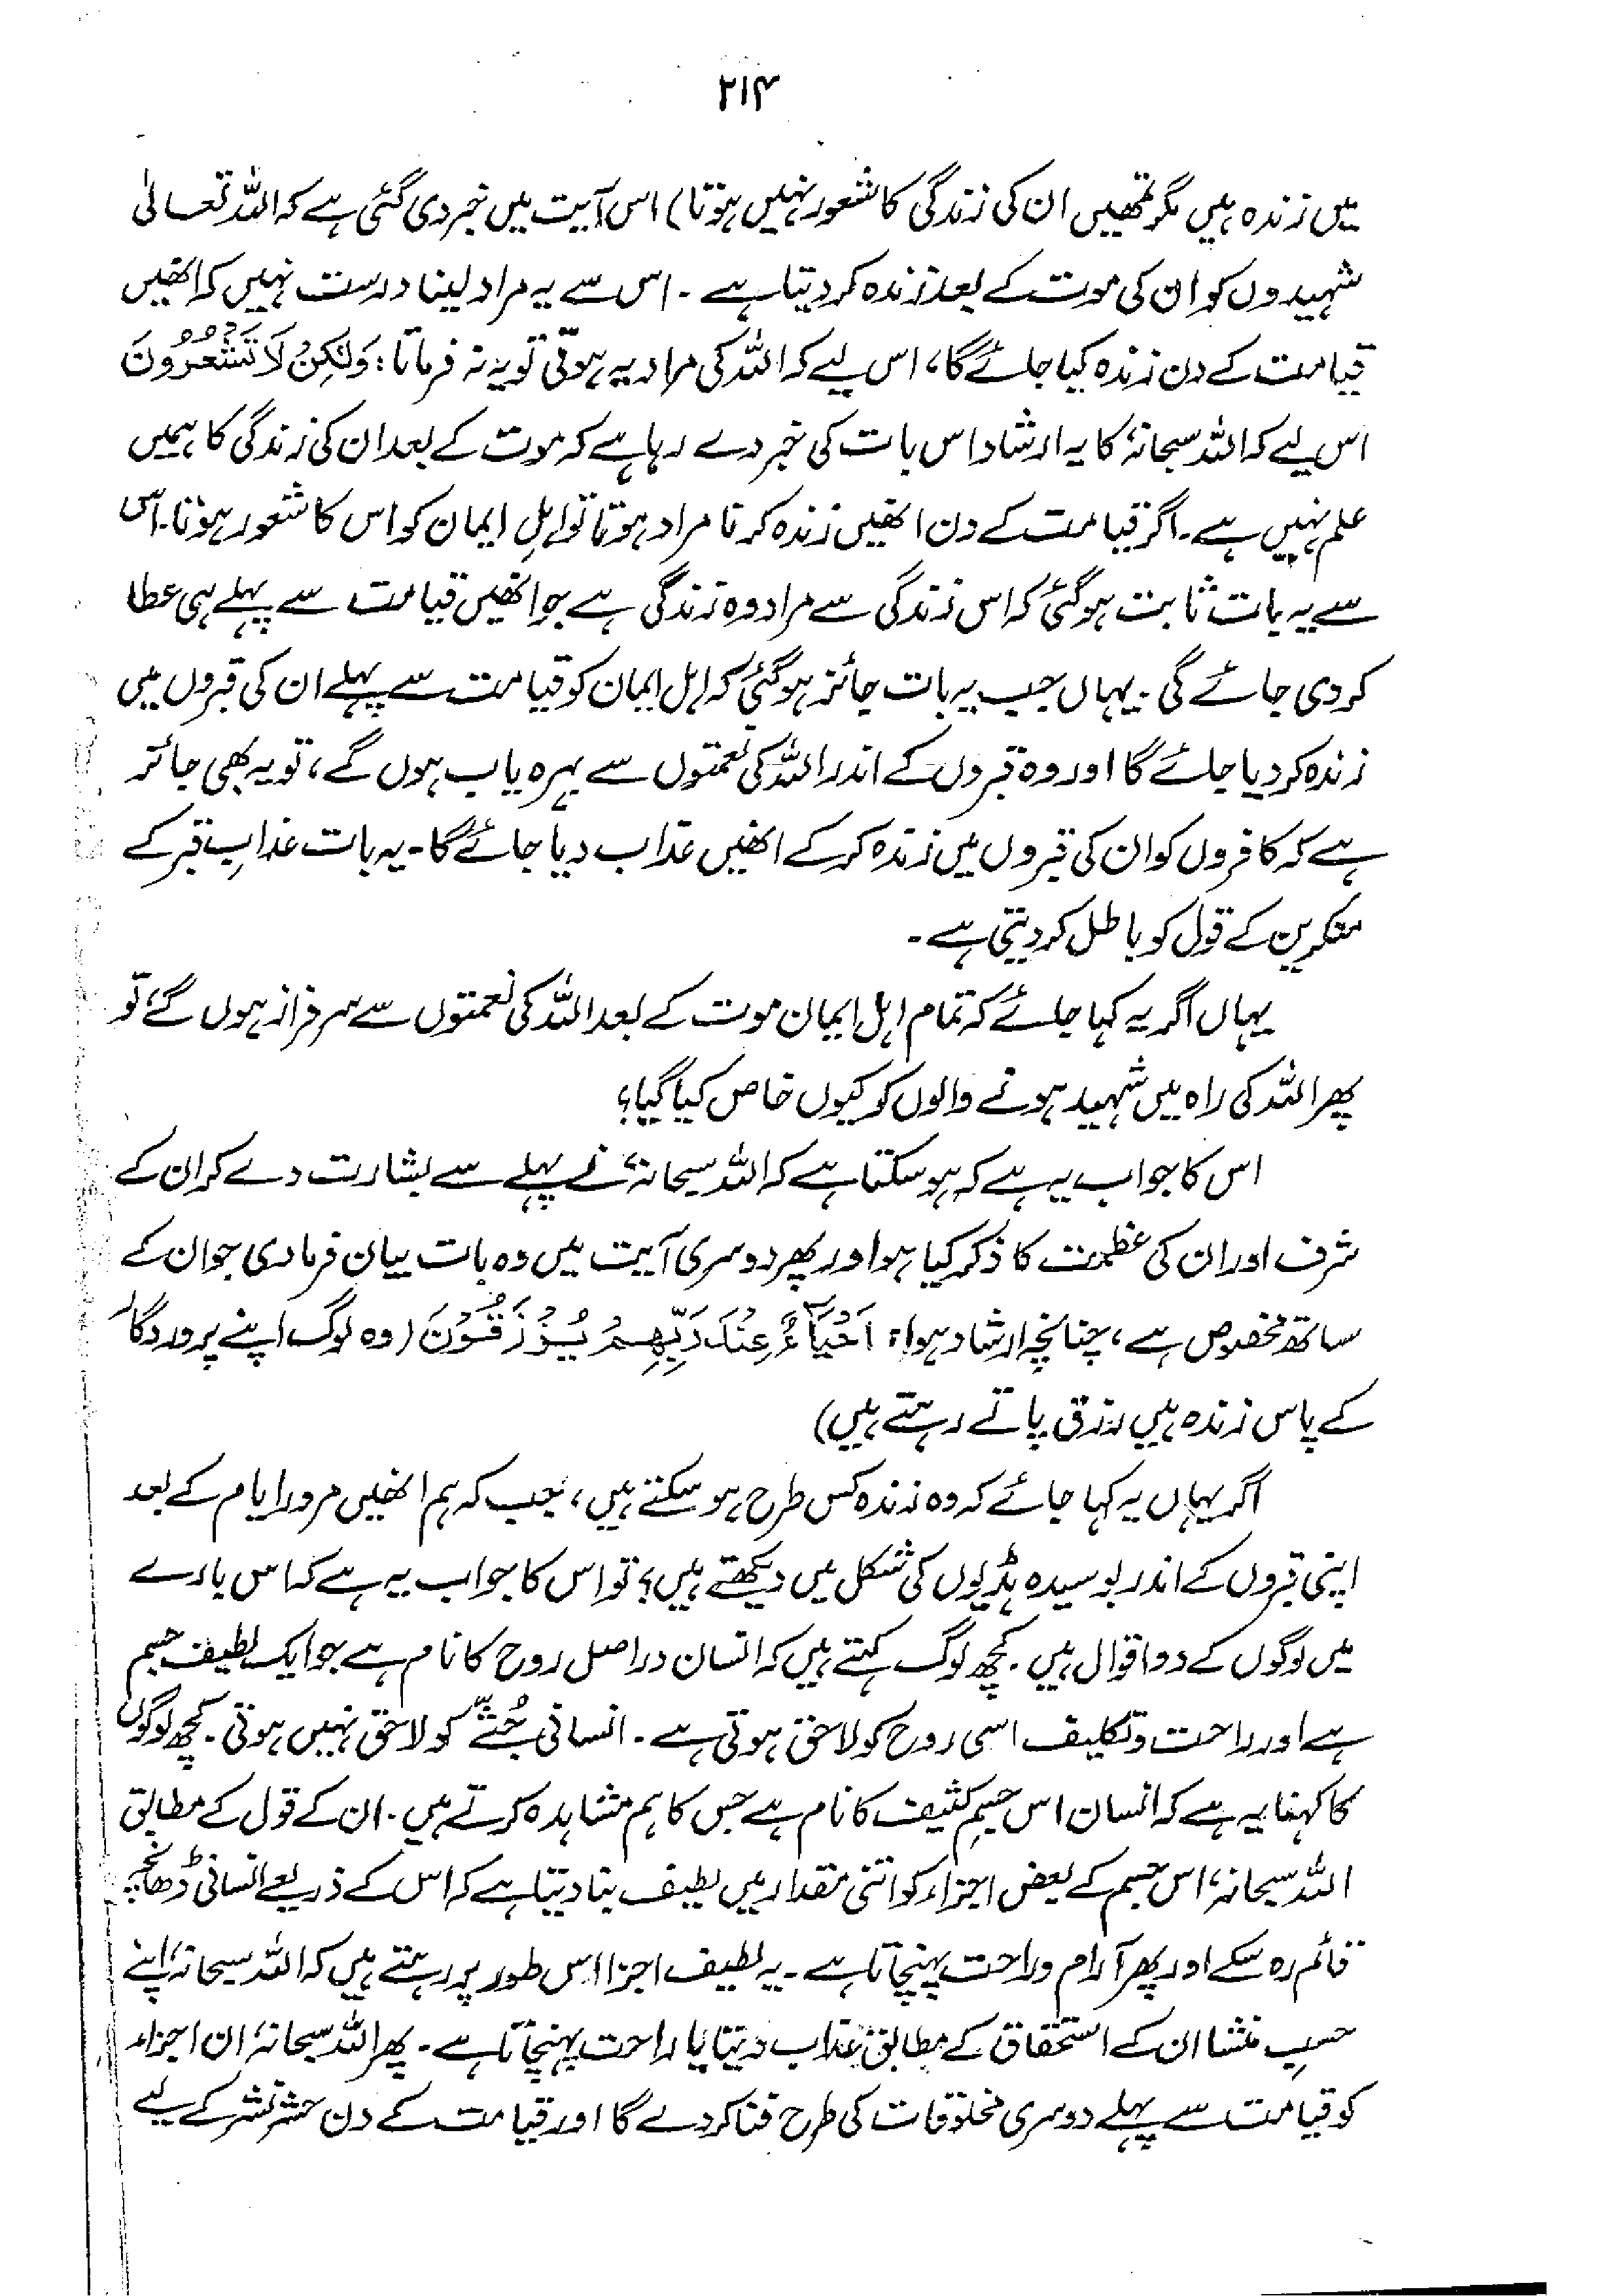 ۲۱۴
میں زندہ ہیں مگر تمھیں ان کی زندگی کا شعور نہیں ہوتا) اس آیت میں خبر دی گئی ہے کہ اللہ تعالیٰ
شہیدوں کو ان کی موت کے بعد زندہ کر دیتا ہے ۔ اس سے یہ مراد لینا درست نہیں کہ انھیں
قیامت کے دن زندہ کیا جائے گا، اس لیے کہ اللہ کی مراد یہ ہوتی تو یہ نہ فرماتا : وَلٰكِنْ لَا تَشْعُرُوْنَ
اس لیے کہ اللہ سبحانہٗ کا یہ ارشاد اس بات کی خبر دے رہا ہے کہ موت کے بعد ان کی زندگی کا ہمیں
علم نہیں ہے ۔ اگر قیامت کے دن انھیں زندہ کرنا مراد ہوتا تو اہلِ ایمان کو اس کا شعور ہوتا۔ اس
سے یہ بات ثابت ہو گئی کہ اس زندگی سے مراد وہ زندگی ہے جو انھیں قیامت سے پہلے ہی عطا
کر دی جائے گی ۔ یہاں جب یہ بات جائز ہو گئی کہ اہل ایمان کو قیامت سے پہلے ان کی قبروں میں
زندہ کر دیا جائے گا اور وہ قبروں کے اندر اللہ کی نعمتوں سے بہرہ یاب ہوں گے، تو یہ بھی جائز
ہے کہ کافروں کو ان کی قبروں میں زندہ کر کے انھیں عذاب دیا جائے گا ۔ یہ بات عذابِ قبر کے
منکرین کے قول کو باطل کر دیتی ہے ۔
یہاں اگر یہ کہا جائے کہ تمام اہل ایمان موت کے بعد اللہ کی نعمتوں سے سرفراز ہوں گے، تو
پھر اللہ کی راہ میں شہید ہونے والوں کو کیوں خاص کیا گیا؟
اس کا جواب یہ ہے کہ ہو سکتا ہے کہ اللہ سبحانہٗ نے پہلے سے بشارت دے کر ان کے
شرف اور ان کی عظمت کا ذکر کیا ہو اور پھر دوسری آیت میں وہ بات بیان فرما دی جو ان کے
ساتھ مخصوص ہے، چنانچہ ارشاد ہوا : اَحْيَآءٌ عِنْدَ رَبِّهِمْ يُرْزَقُوْنَ (وہ لوگ اپنے پروردگار
کے پاس زندہ ہیں رزق پاتے رہتے ہیں)
اگر یہاں یہ کہا جائے کہ وہ زندہ کس طرح ہو سکتے ہیں، جب کہ ہم انھیں مرورِ ایام کے بعد
اپنی قبروں کے اندر بوسیدہ ہڈیوں کی شکل میں دیکھتے ہیں؟ تو اس کا جواب یہ ہے کہ اس بارے
میں لوگوں کے دو اقوال ہیں ۔ کچھ لوگ کہتے ہیں کہ انسان دراصل روح کا نام ہے جو ایک لطیف جسم
ہے اور راحت و تکلیف اسی روح کو لاحق ہوتی ہے ۔ انسانی جُثّے کو لاحق نہیں ہوتی ۔ کچھ لوگوں
کا کہنا یہ ہے کہ انسان اس جسمِ کثیف کا نام ہے جس کا ہم مشاہدہ کرتے ہیں ۔ ان کے قول کے مطابق
اللہ سبحانہٗ، اس جسم کے بعض اجزاء کو اتنی مقدار میں لطیف بنا دیتا ہے کہ اس کے ذریعے انسانی ڈھانچہ
قائم رہ سکے اور پھر آرام و راحت پہنچاتا ہے ۔ یہ لطیف اجزا اس طور پر رہتے ہیں کہ اللہ سبحانہٗ اپنے
حسبِ منشا ان کے استحقاق کے مطابق عذاب دیتا یا راحت پہنچاتا ہے ۔ پھر اللہ سبحانہٗ ان اجزاء
کو قیامت سے پہلے دوسری مخلوقات کی طرح فنا کر دے گا اور قیامت کے دن حشر نشر کے لیے